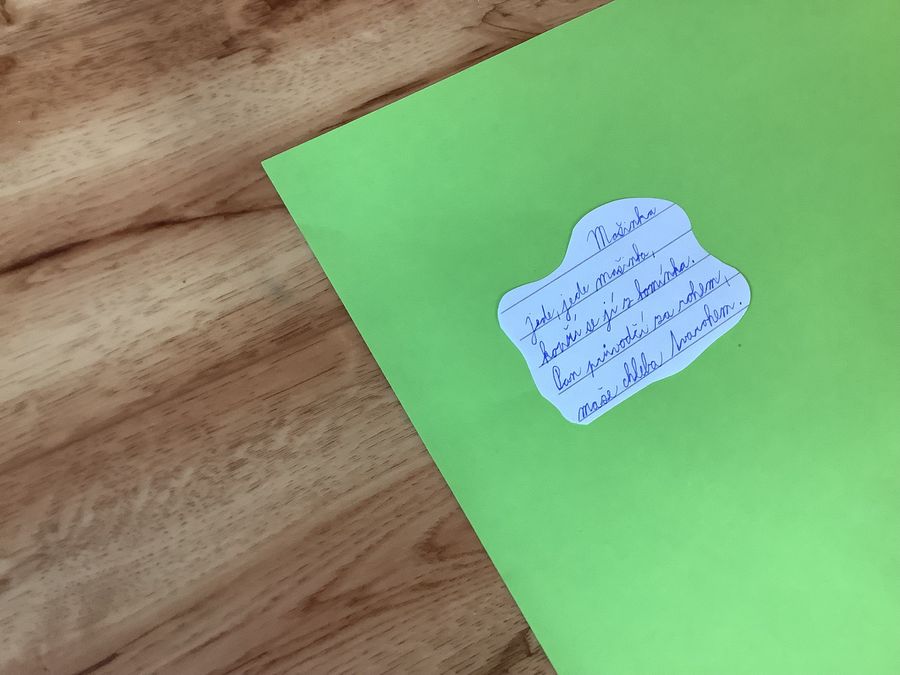 Mašinka
Jede, jede mašinka,
kouří se jí z komínka.
Pan průvodčí za rohem,
maže chleba tvarohem.